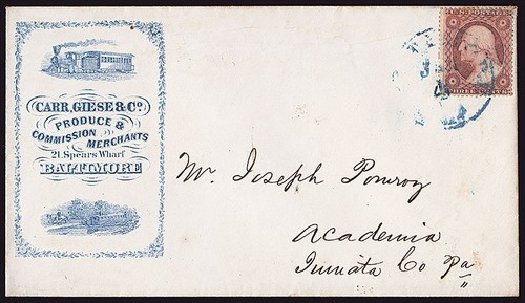 CARR, GIESE & Co.
PRODUCE &
COMMISSION MERCHANTS
21, Spears Wharf
BALTIMORE
U.S. POSTAGE
THREE CENTS
Mr. Joseph Pomroy
Academia
Juniata Co Pa